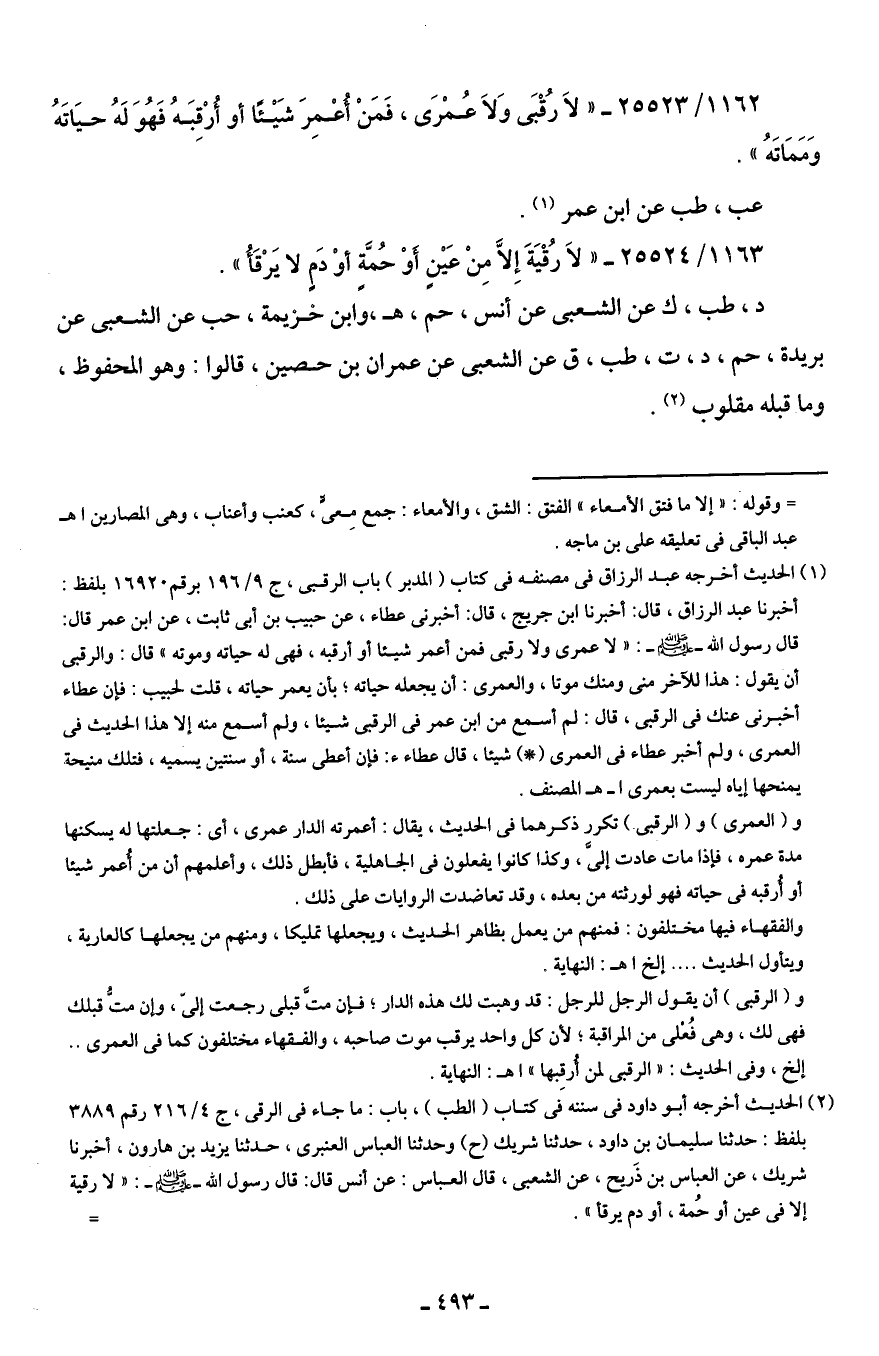 ١١٦٢/ ٢٥٥٢٣ ـ « لاَ رُقْبَى وَلاَ عُمْرَى ، فَمَنْ أُعْمِرَ شَيْئًا أو أُرْقِبَهُ فَهُوَ لَهُ حيَاتَهُ
وَمَمَاتَهُ » .
عب ، طب عن ابن عمر (١) .
١١٦٣/ ٢٥٥٢٤ ـ « لاَ رُقْيَةَ إِلاَّ مِنْ عَيْنٍ أَوْ حُمَّةٍ أوْ دَمٍ لا يَرْقَأُ » .
د ، طب ، ك عن الشعبى عن أنس ، حم ، هـ ،وابن خزيمة ، حب عن الشعبى عن
بريدة ، حم ، د ، ت ، طب ، ق عن الشعبى عن عمران بن حصين ، قالوا : وهو المحفوظ ،
وما قبله مقلوب (٢) .
= وقوله : « إلا ما فتق الأمعاء » الفتق : الشق ، والأمعاء : جمع مِعىً ، كعنب وأعناب ، وهى المصارين ا هـ
عبد الباقى فى تعليقه على بن ماجه .
(١) الحديث أخرجه عبد الرزاق فى مصنفه فى كتاب ( المدبر ) باب الرقبى ، ج ٩/ ١٩٦ برقم ١٦٩٢٠ بلفظ :
أخبرنا عبد الرزاق ، قال: أخبرنا ابن جريج ، قال: أخبرنى عطاء ، عن حبيب بن أبى ثابت ، عن ابن عمر قال:
قال رسول الله ـ ﷺ ـ : « لا عمرى ولا رقبى فمن أعمر شيئا أو أرقبه ، فهى له حياته وموته » قال : والرقبى
أن يقول : هذا للآخر منى ومنك موتا ، والعمرى : أن يجعله حياته ؛ بأن يعمر حياته ، قلت لحبيب : فإن عطاء
أخبرنى عنك فى الرقبى ، قال : لم أسمع من ابن عمر فى الرقبى شيئا ، ولم أسمع منه إلا هذا الحديث فى
العمرى ، ولم أخبر عطاء فى العمرى (*) شيئا ، قال عطاء ء: فإن أعطى سنة ، أو سنتين يسميه ، فتلك منيحة
يمنحها إياه ليست بعمرى ا ـ هـ المصنف .
و ( العمرى ) و ( الرقبى ) تكرر ذكرهما فى الحديث ، يقال : أعمرته الدار عمرى ، أى : جعلتها له يسكنها
مدة عمره ، فإذا مات عادت إلىَّ ، وكذا كانوا يفعلون فى الجاهلية ، فأبطل ذلك ، وأعلمهم أن من أُعمر شيئا
أو أُرقبه فى حياته فهو لورثته من بعده ، وقد تعاضدت الروايات على ذلك .
والفقهاء فيها مختلفون : فمنهم من يعمل بظاهر الحديث ، ويجعلها تمليكا ، ومنهم من يجعلها كالعارية ،
ويتأول الحديث .... إلخ ا هـ : النهاية .
و ( الرقبى ) أن يقول الرجل للرجل : قد وهبت لك هذه الدار ؛ فإن متَّ قبلى رجعت إلىّ ، وإن متُّ قبلك
فهى لك ، وهى فُعْلى من المراقبة ؛ لأن كل واحد يرقب موت صاحبه ، والفقهاء مختلفون كما فى العمرى ..
إلخ ، وفى الحديث : « الرقبى لمن أُرقِبها » ا هـ : النهاية .
(٢) الحديث أخرجه أبو داود فى سننه فى كتاب ( الطب ) ، باب : ما جاء فى الرقى ، ج ٤/ ٢١٦ رقم ٣٨٨٩
بلفظ : حدثنا سليمان بن داود ، حدثنا شريك (ح) وحدثنا العباس العنبرى ، حدثنا يزيد بن هارون ، أخبرنا
شريك ، عن العباس بن ذَريح ، عن الشعبى ، قال العباس : عن أنس قال: قال رسول الله ـ ﷺ ـ : « لا رقية
إلا فى عين أو حُمة ، أو دم يرقأ » .
=
ـ ٤٩٣ ـ